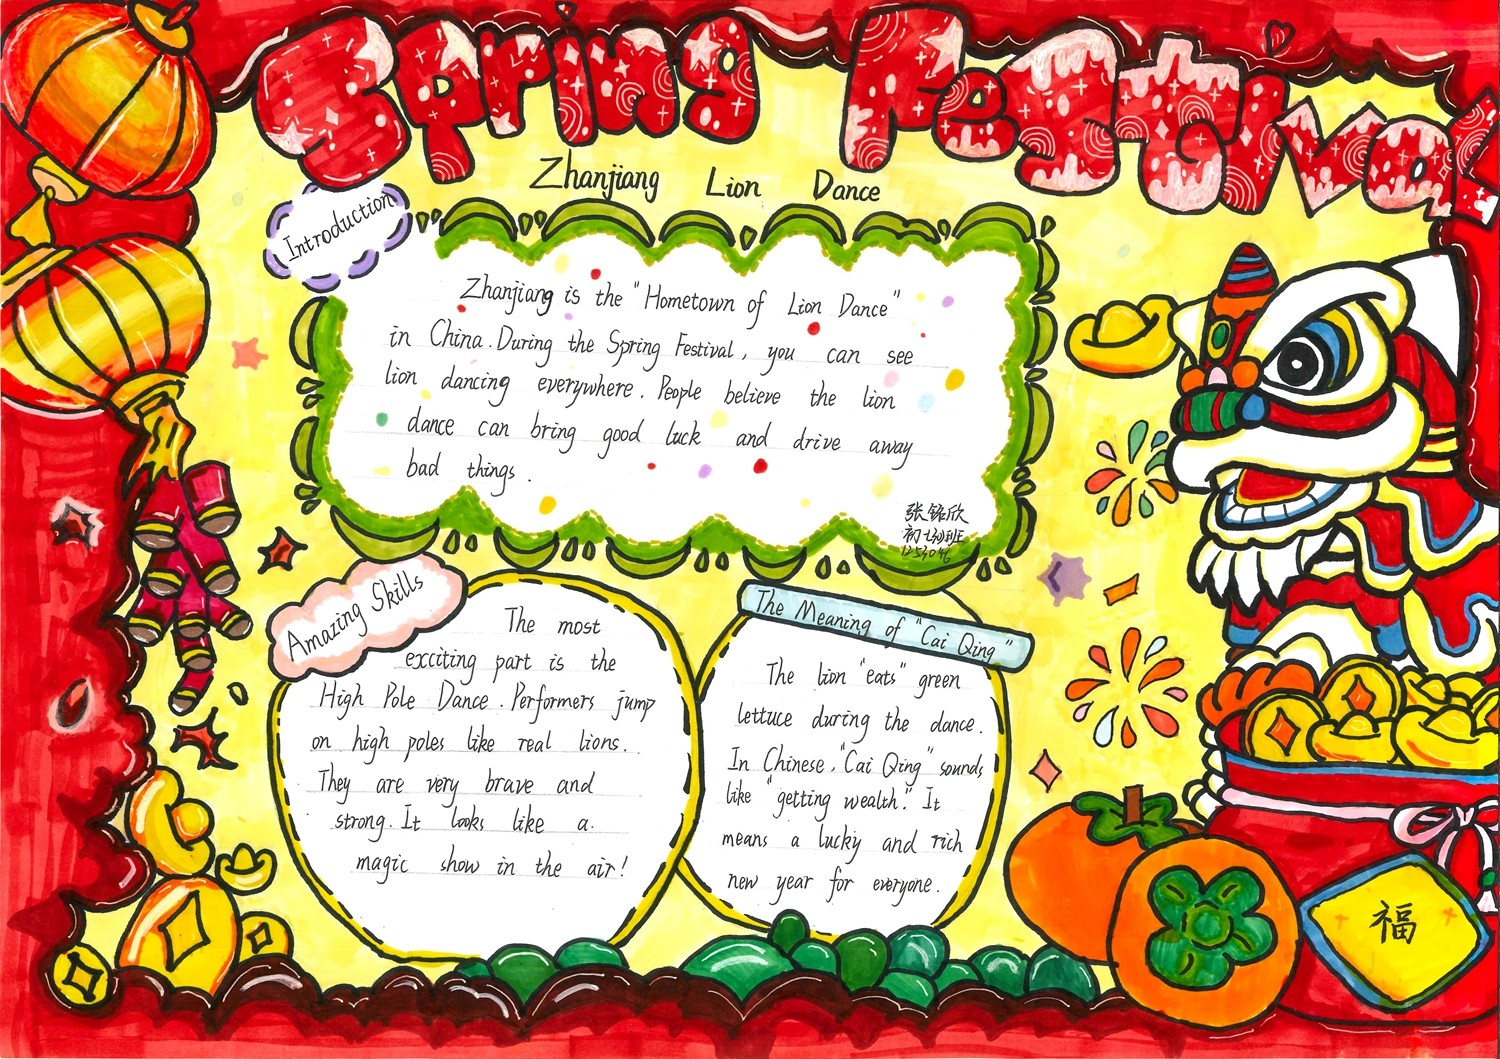 Spring Festival
Zhanjiang Lion Dance
Introduction
Zhanjiang is the "Hometown of Lion Dance"
in China. During the Spring Festival, you can see
lion dancing everywhere. People believe the lion
dance can bring good luck and drive away
bad things.
张铭欣
Amazing Skills
The most
exciting part is the
High Pole Dance. Performers jump
on high poles like real lions.
They are very brave and
strong. It looks like a
magic show in the air!
The Meaning of "Cai Qing"
The lion "eats" green
lettuce during the dance.
In Chinese, "Cai Qing" sounds
like "getting wealth". It
means a lucky and rich
new year for everyone.
福